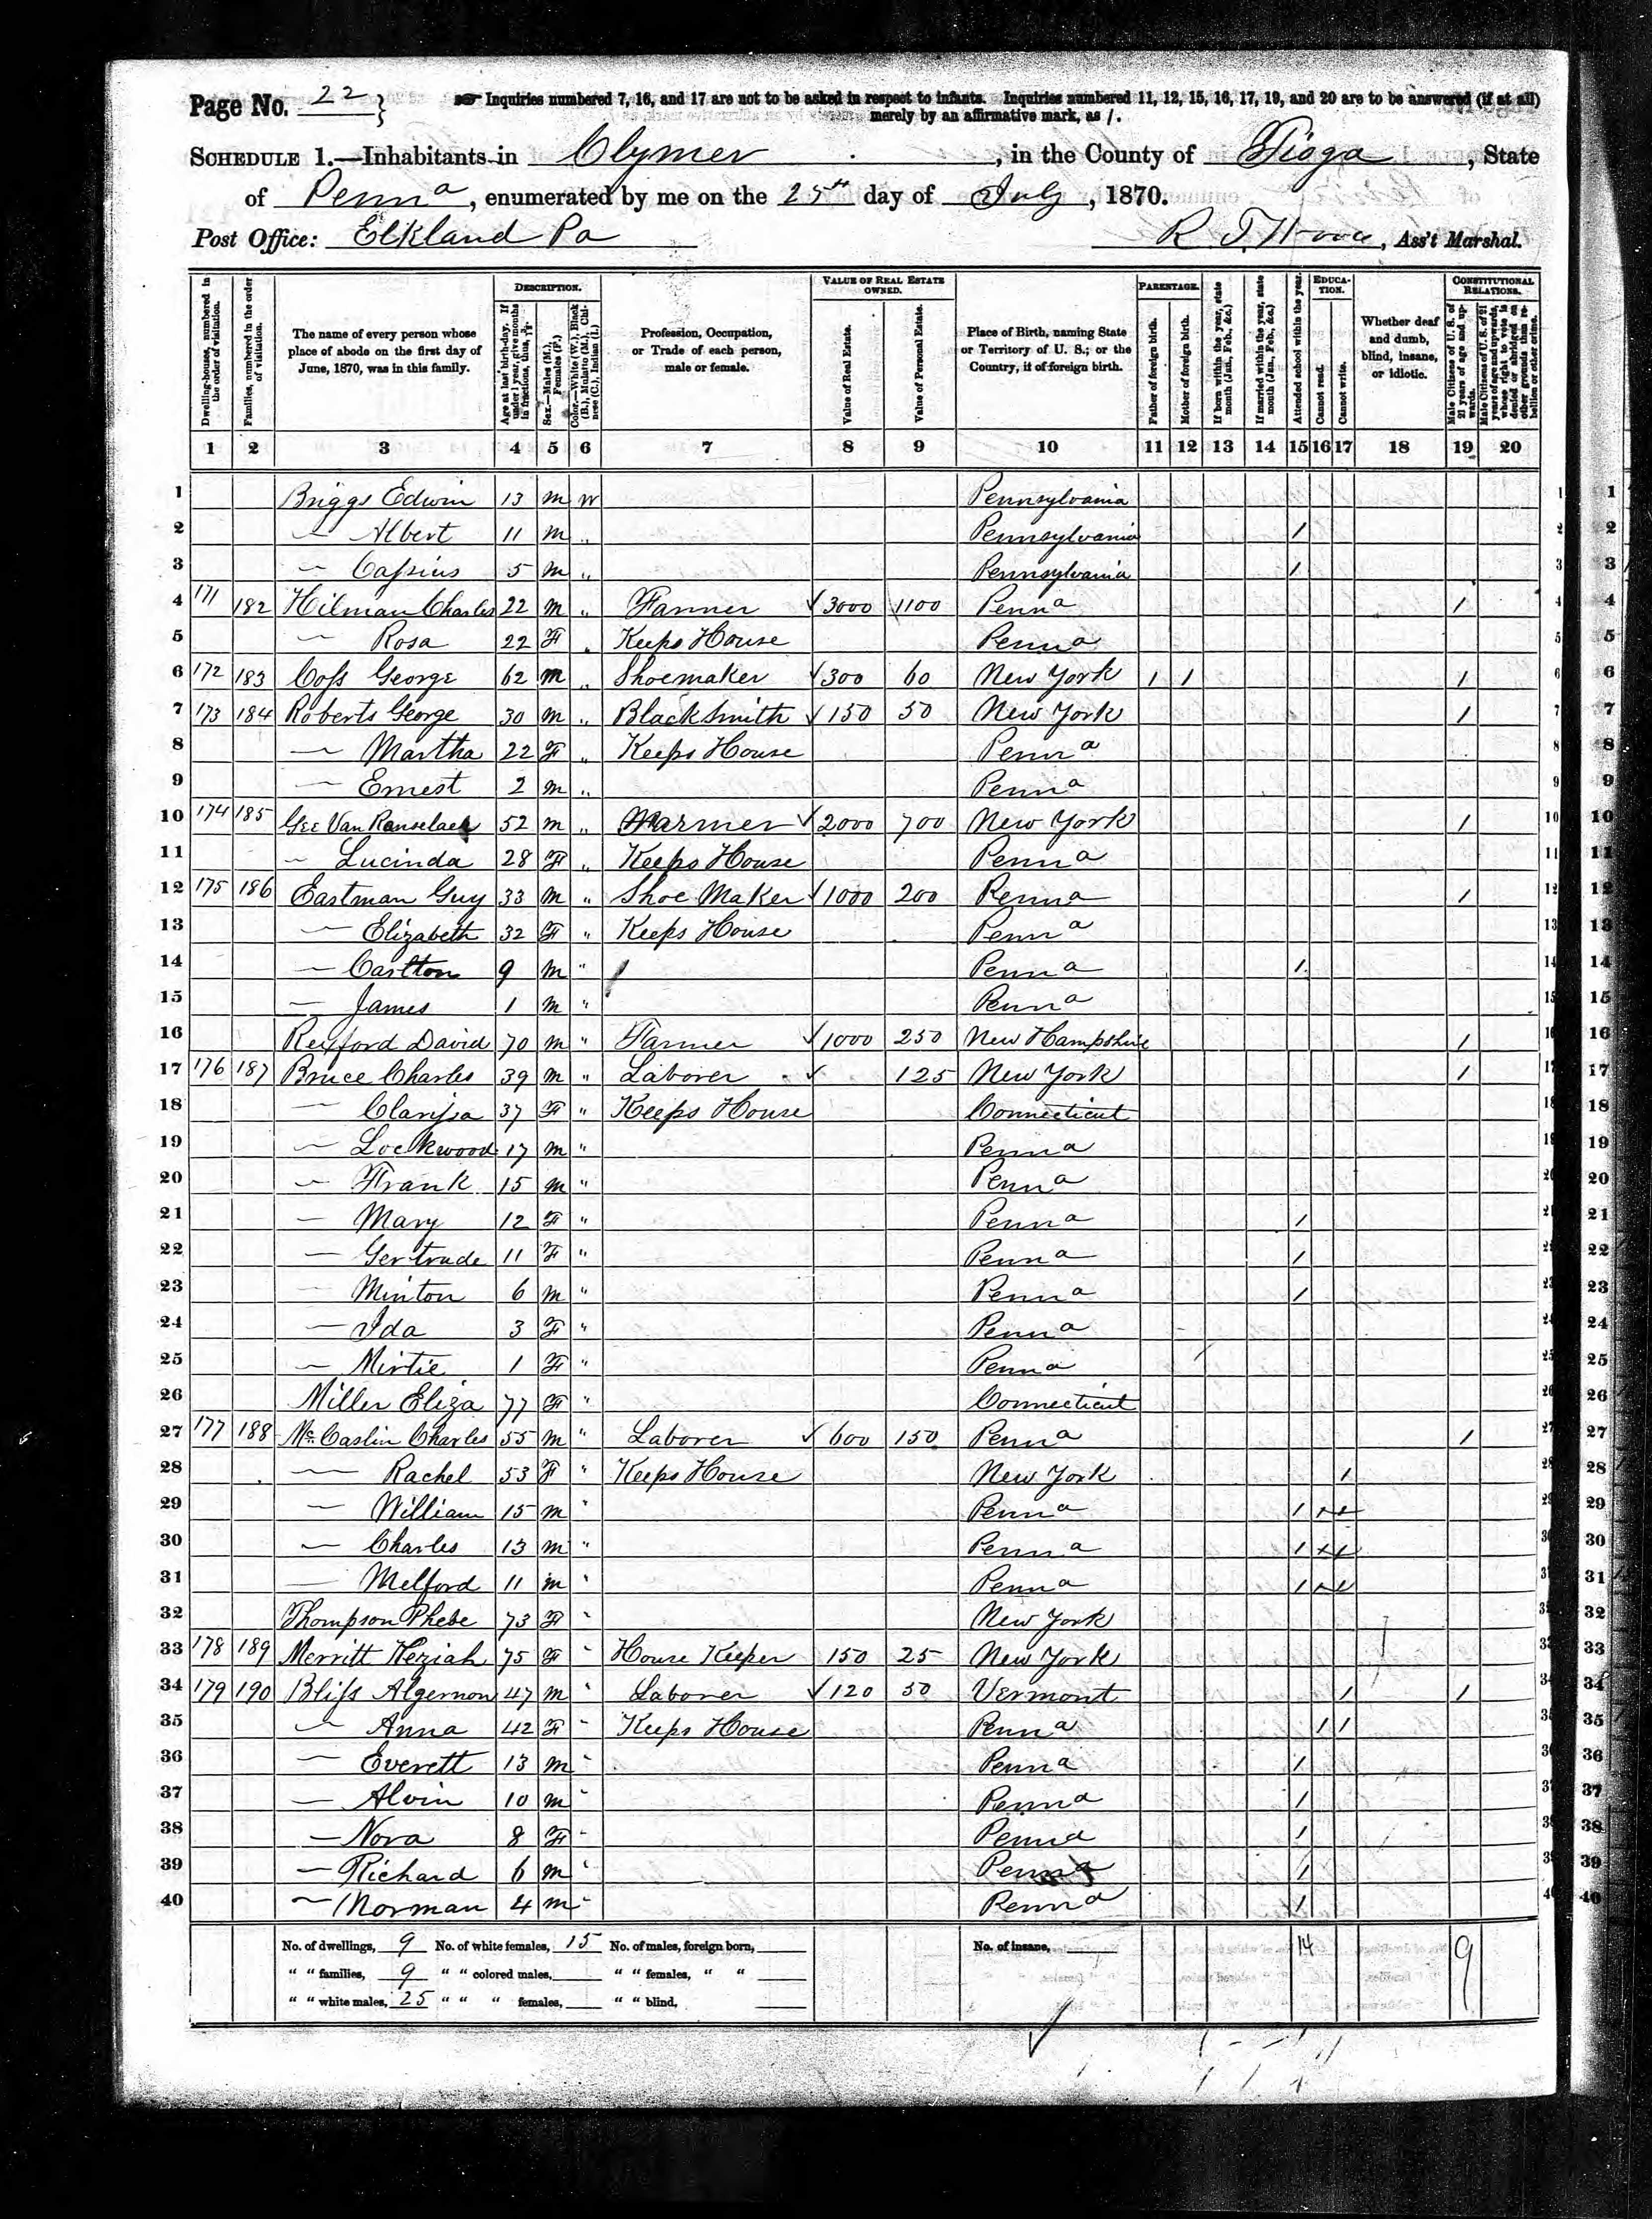 Page No. 22
Inquiries numbered 7, 16, and 17 are not to be asked in respect to infants. Inquiries numbered 11, 12, 15, 16, 17, 19, and 20 are to be answered (if at all)
merely by an affirmative mark, as /.
SCHEDULE 1.—Inhabitants in Clymer, in the County of Tioga, State
of Penna, enumerated by me on the 25th day of July, 1870.
Post Office: Elkland Pa R. T. , Ass't Marshal.
Dwelling-houses, numbered in the order of visitation.
Families, numbered in the order of visitation.
The name of every person whose place of abode on the first day of June, 1870, was in this family.
DESCRIPTION.
Age at last birth-day. If under 1 year, give months in fractions, thus,
Sex.—Males (M.), Females (F.)
Color.—White (W.), Black (B.), Mulatto (M.), Chinese (C.), Indian (I.)
Profession, Occupation, or Trade of each person, male or female.
VALUE OF REAL ESTATE OWNED.
Value of Real Estate.
Value of Personal Estate.
Place of Birth, naming State or Territory of U. S.; or the Country, if of foreign birth.
PARENTAGE.
Father of foreign birth.
Mother of foreign birth.
If born within the year, state month (Jan., Feb., &c.)
If married within the year, state month (Jan., Feb., &c.)
Attended school within the year.
EDUCATION.
Cannot read.
Cannot write.
Whether deaf and dumb, blind, insane, or idiotic.
CONSTITUTIONAL RELATIONS.
Male Citizens of U. S. of 21 years of age and upwards.
Male Citizens of U. S. of 21 years of age and upwards, whose right to vote is denied or abridged on other grounds than rebellion or other crime.
1 2 3 4 5 6 7 8 9 10 11 12 13 14 15 16 17 18 19 20
1 Briggs Edwin 13 M W Pennsylvania 1
2 — Albert 11 M " Pennsylvania / 2
3 — Cassius 5 M " Pennsylvania / 3
4 171 182 Hilman Charles 22 M " Farmer ✓ 3000 1100 Penna / 4
5 — Rosa 22 F " Keeps House Penna 5
6 172 183 Coss George 62 M " Shoemaker ✓ 300 60 New York / / / 6
7 173 184 Roberts George 30 M " BlackSmith ✓ 150 50 New York / 7
8 — Martha 22 F " Keeps House Penna 8
9 — Ernest 2 M " Penna 9
10 174 185 Gee Van Ranselaer 52 M " Farmer ✓ 2000 700 New York / 10
11 — Lucinda 28 F " Keeps House Penna 11
12 175 186 Eastman Guy 33 M " Shoe Maker ✓ 1000 200 Penna / 12
13 — Elizabeth 32 F " Keeps House Penna 13
14 — Carlton 9 M " Penna / 14
15 — James 1 M " Penna 15
16 Rexford David 70 M " Farmer ✓ 1000 250 New Hampshire / 16
17 176 187 Bruce Charles 39 M " Laborer ✓ 125 New York / 17
18 — Clarissa 37 F " Keeps House Connecticut 18
19 — Lockwood 17 M " Penna 19
20 — Frank 15 M " Penna 20
21 — Mary 12 F " Penna / 21
22 — Gertrude 11 F " Penna / 22
23 — Minton 6 M " Penna / 23
24 — Ida 3 F " Penna 24
25 — Mirtie 1 F " Penna 25
26 Miller Eliza 77 F " Connecticut 26
27 177 188 McCaslin Charles 55 M " Laborer ✓ 600 150 Penna / 27
28 — Rachel 53 F " Keeps House New York / 28
29 — William 15 M " Penna / 29
30 — Charles 13 M " Penna / 30
31 — Melford 11 M " Penna / 31
32 Thompson Phebe 73 F " New York 32
33 178 189 Merritt Keziah 75 F " House Keeper 150 25 New York 33
34 179 190 Bliss Algernon 47 M " Laborer ✓ 120 50 Vermont / / 34
35 — Anna 42 F " Keeps House Penna / / 35
36 — Everett 13 M " Penna / 36
37 — Alvin 10 M " Penna / 37
38 — Nora 8 F " Penna / 38
39 — Richard 6 M " Penna / 39
40 — Norman 4 M " Penna / 40
No. of dwellings, 9 No. of white females, 15 No. of males, foreign born, No. of insane, 14 9
" " families, 9 " " colored males, " " females, " "
" " white males, 25 " " " females, " " blind,